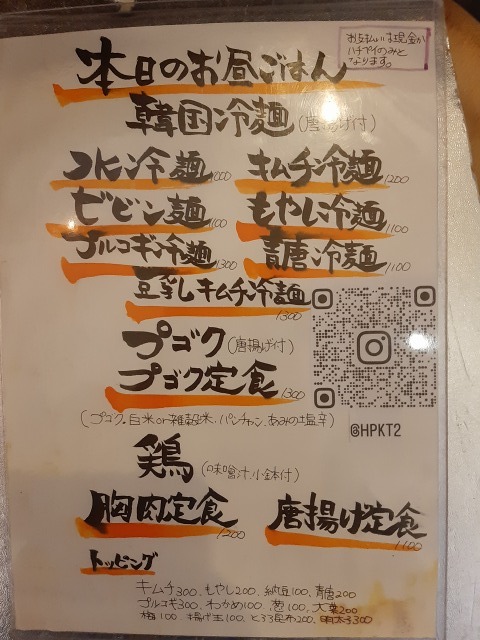 お支払いは現金か
ハチペイのみと
なります。
本日のお昼ごはん
韓国冷麺(唐揚げ付)
冷麺1000 キムチ冷麺1200
ビビン麺1100 もやし冷麺1100
プルコギ冷麺1300 青唐冷麺1100
豆乳キムチ冷麺1300
プゴク(唐揚げ付)
プゴク定食1300
(プゴク.白米or雑穀米.パンチャン.あみの塩辛)
@HPKT2
鶏(味噌汁.小鉢付)
胸肉定食1200 唐揚げ定食1100
トッピング
キムチ300.もやし200.納豆100.青唐200
プルコギ300.わかめ100.葱100.大葉200
梅100.揚げ玉100.とろろ昆布200.明太子300